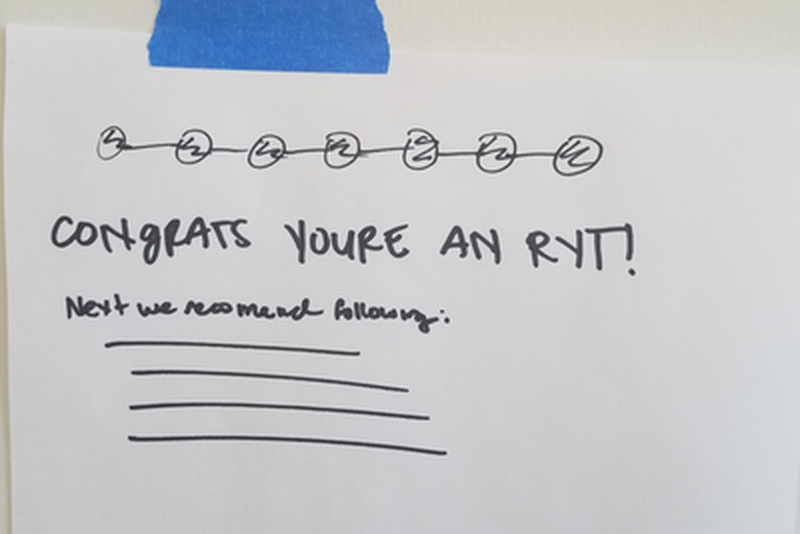 CONgRATS YOURE AN RYT!
Next we recomend following: